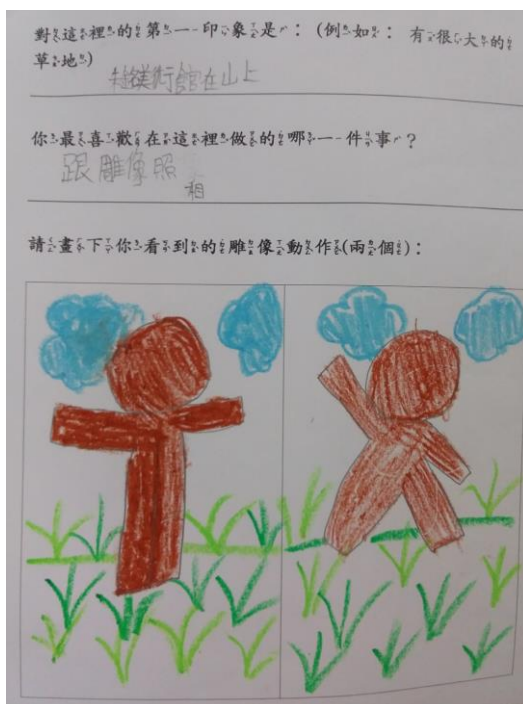 對這裡的第一印象是：(例如： 有很大的
草地)
朱銘美術館在山上
你最喜歡在這裡做的哪一件事？
跟雕像照
相
請畫下你看到的雕像動作(兩個)：